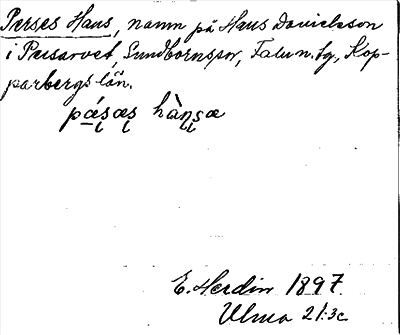 Perses Hans, namn på Hans Danielsson
i Persarvet, Sundbornssor, Falun.tg, Kop-
parbergs län.
pásæs hànsa
E. Herdin 1897.
Ulma 21:3c